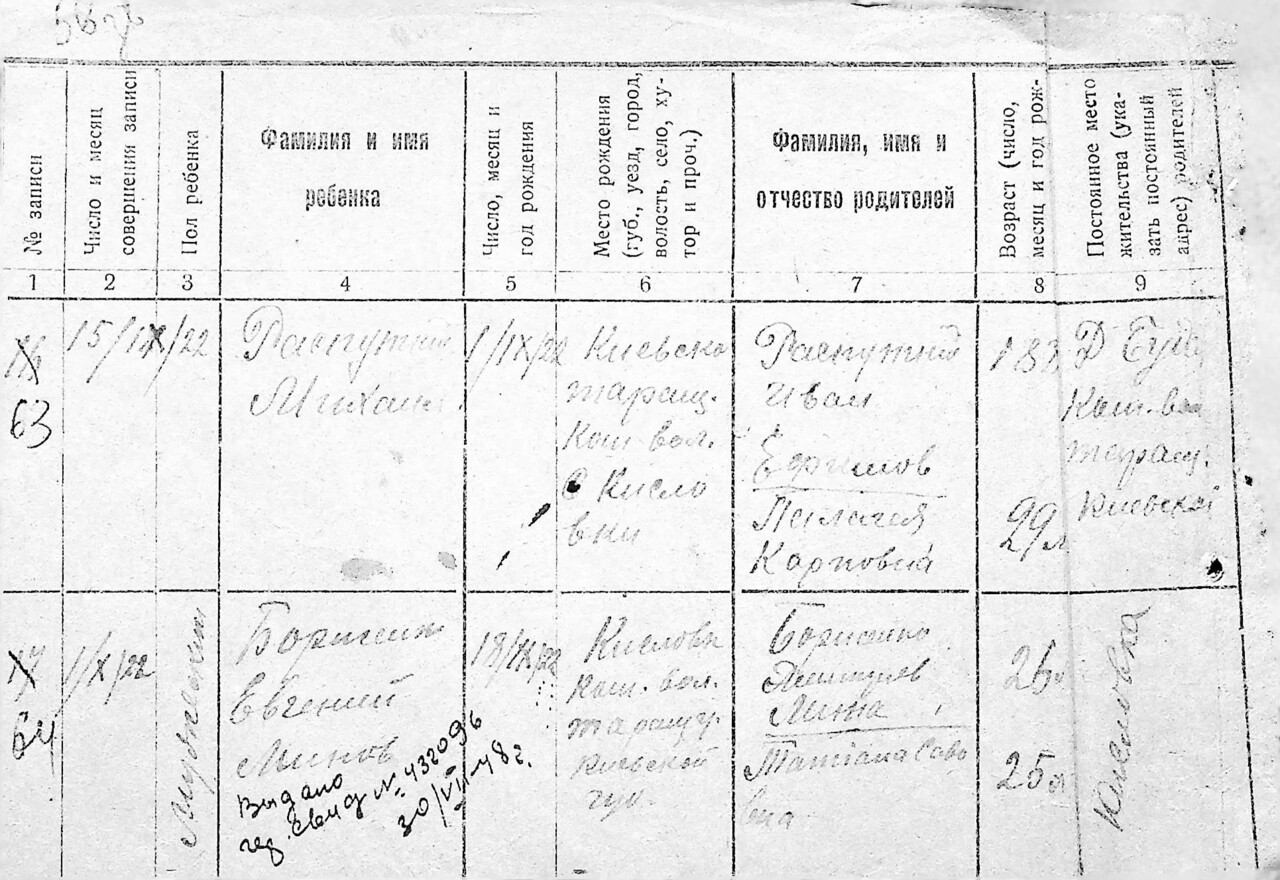 № записи
Число и месяц
совершения записи
Пол ребенка
Фамилия и имя
ребенка
Число, месяц и
год рождения
Место рождения
(губ., уезд, город,
волость, село, ху-
тор и проч.)
Фамилия, имя и
отчество родителей
Возраст (число,
месяц и год рож-
Постоянное место
жительства (ука-
зать постоянный
адрес) родителей
1 2 3 4 5 6 7 8 9
63
15/IX/22
Распутний
Михаил
1/IX/22
Киевско
таращ.
Кош. вол.
С Кисло
вки
Распутний
Иван
Ефримов
Пелагея
Карповна
29 л
Д
Кош. вол
таращ.
Киевской
17
64
1/X/22
Мужеский
Евгений
Минов
Выдано
Свид № 432096
30/VII-48 г.
18/IX/22
Кисловк
Кош. вол.
таращ. у.
Киевской
губ.
Мина
Татиана Сав
вна
25 л
Кисловка